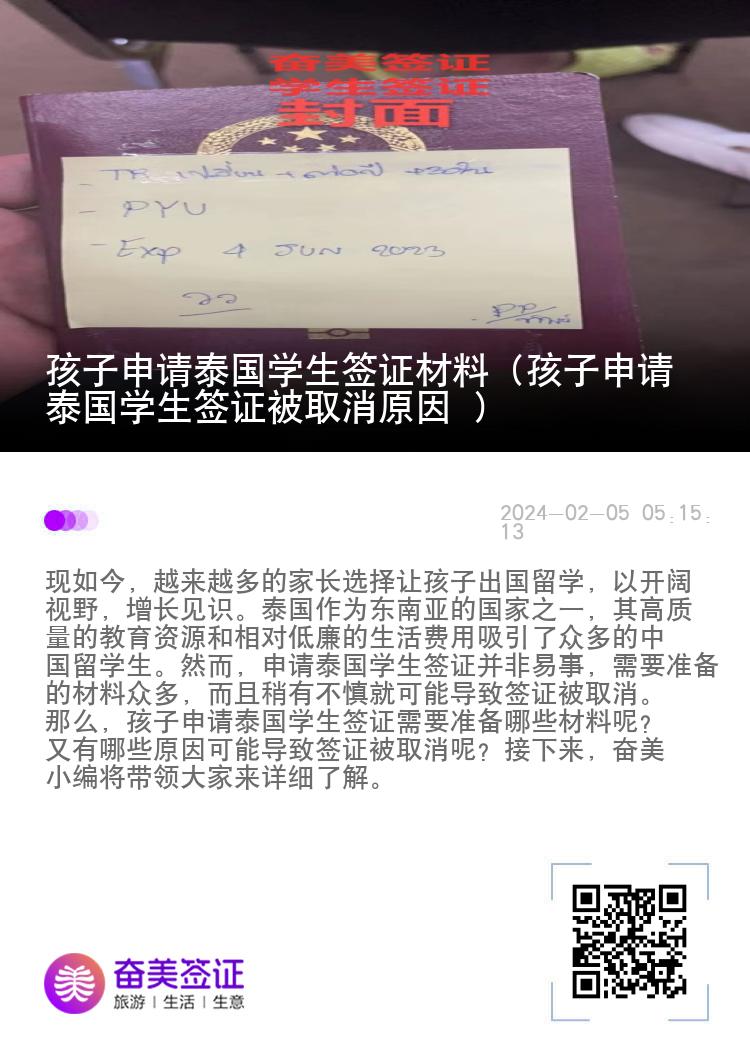 奋美签证
学生签证
封面
- TR เปลี่ยน +
- PYU
- Exp 4 JUN 2023
孩子申请泰国学生签证材料（孩子申请
泰国学生签证被取消原因 ）
2024-02-05 05:15:
13
现如今，越来越多的家长选择让孩子出国留学，以开阔
视野，增长见识。泰国作为东南亚的国家之一，其高质
量的教育资源和相对低廉的生活费用吸引了众多的中
国留学生。然而，申请泰国学生签证并非易事，需要准备
的材料众多，而且稍有不慎就可能导致签证被取消。
那么，孩子申请泰国学生签证需要准备哪些材料呢？
又有哪些原因可能导致签证被取消呢？接下来，奋美
小编将带领大家来详细了解。
奋美签证
旅游 | 生活 | 生意